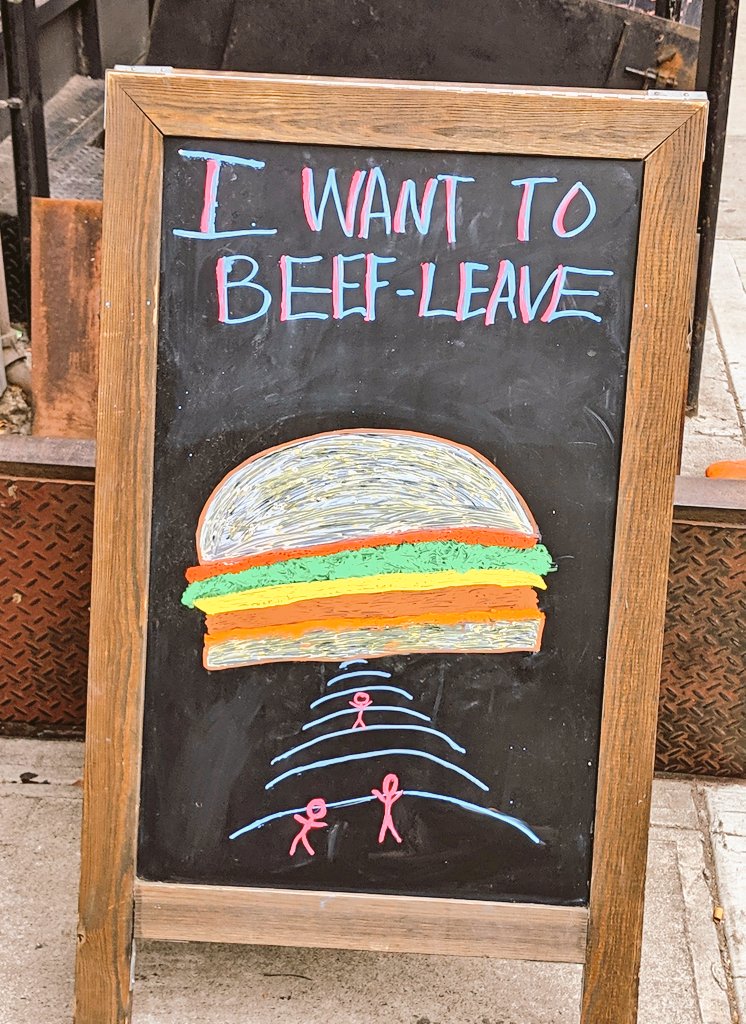 I WANT TO
BEEF-LEAVE